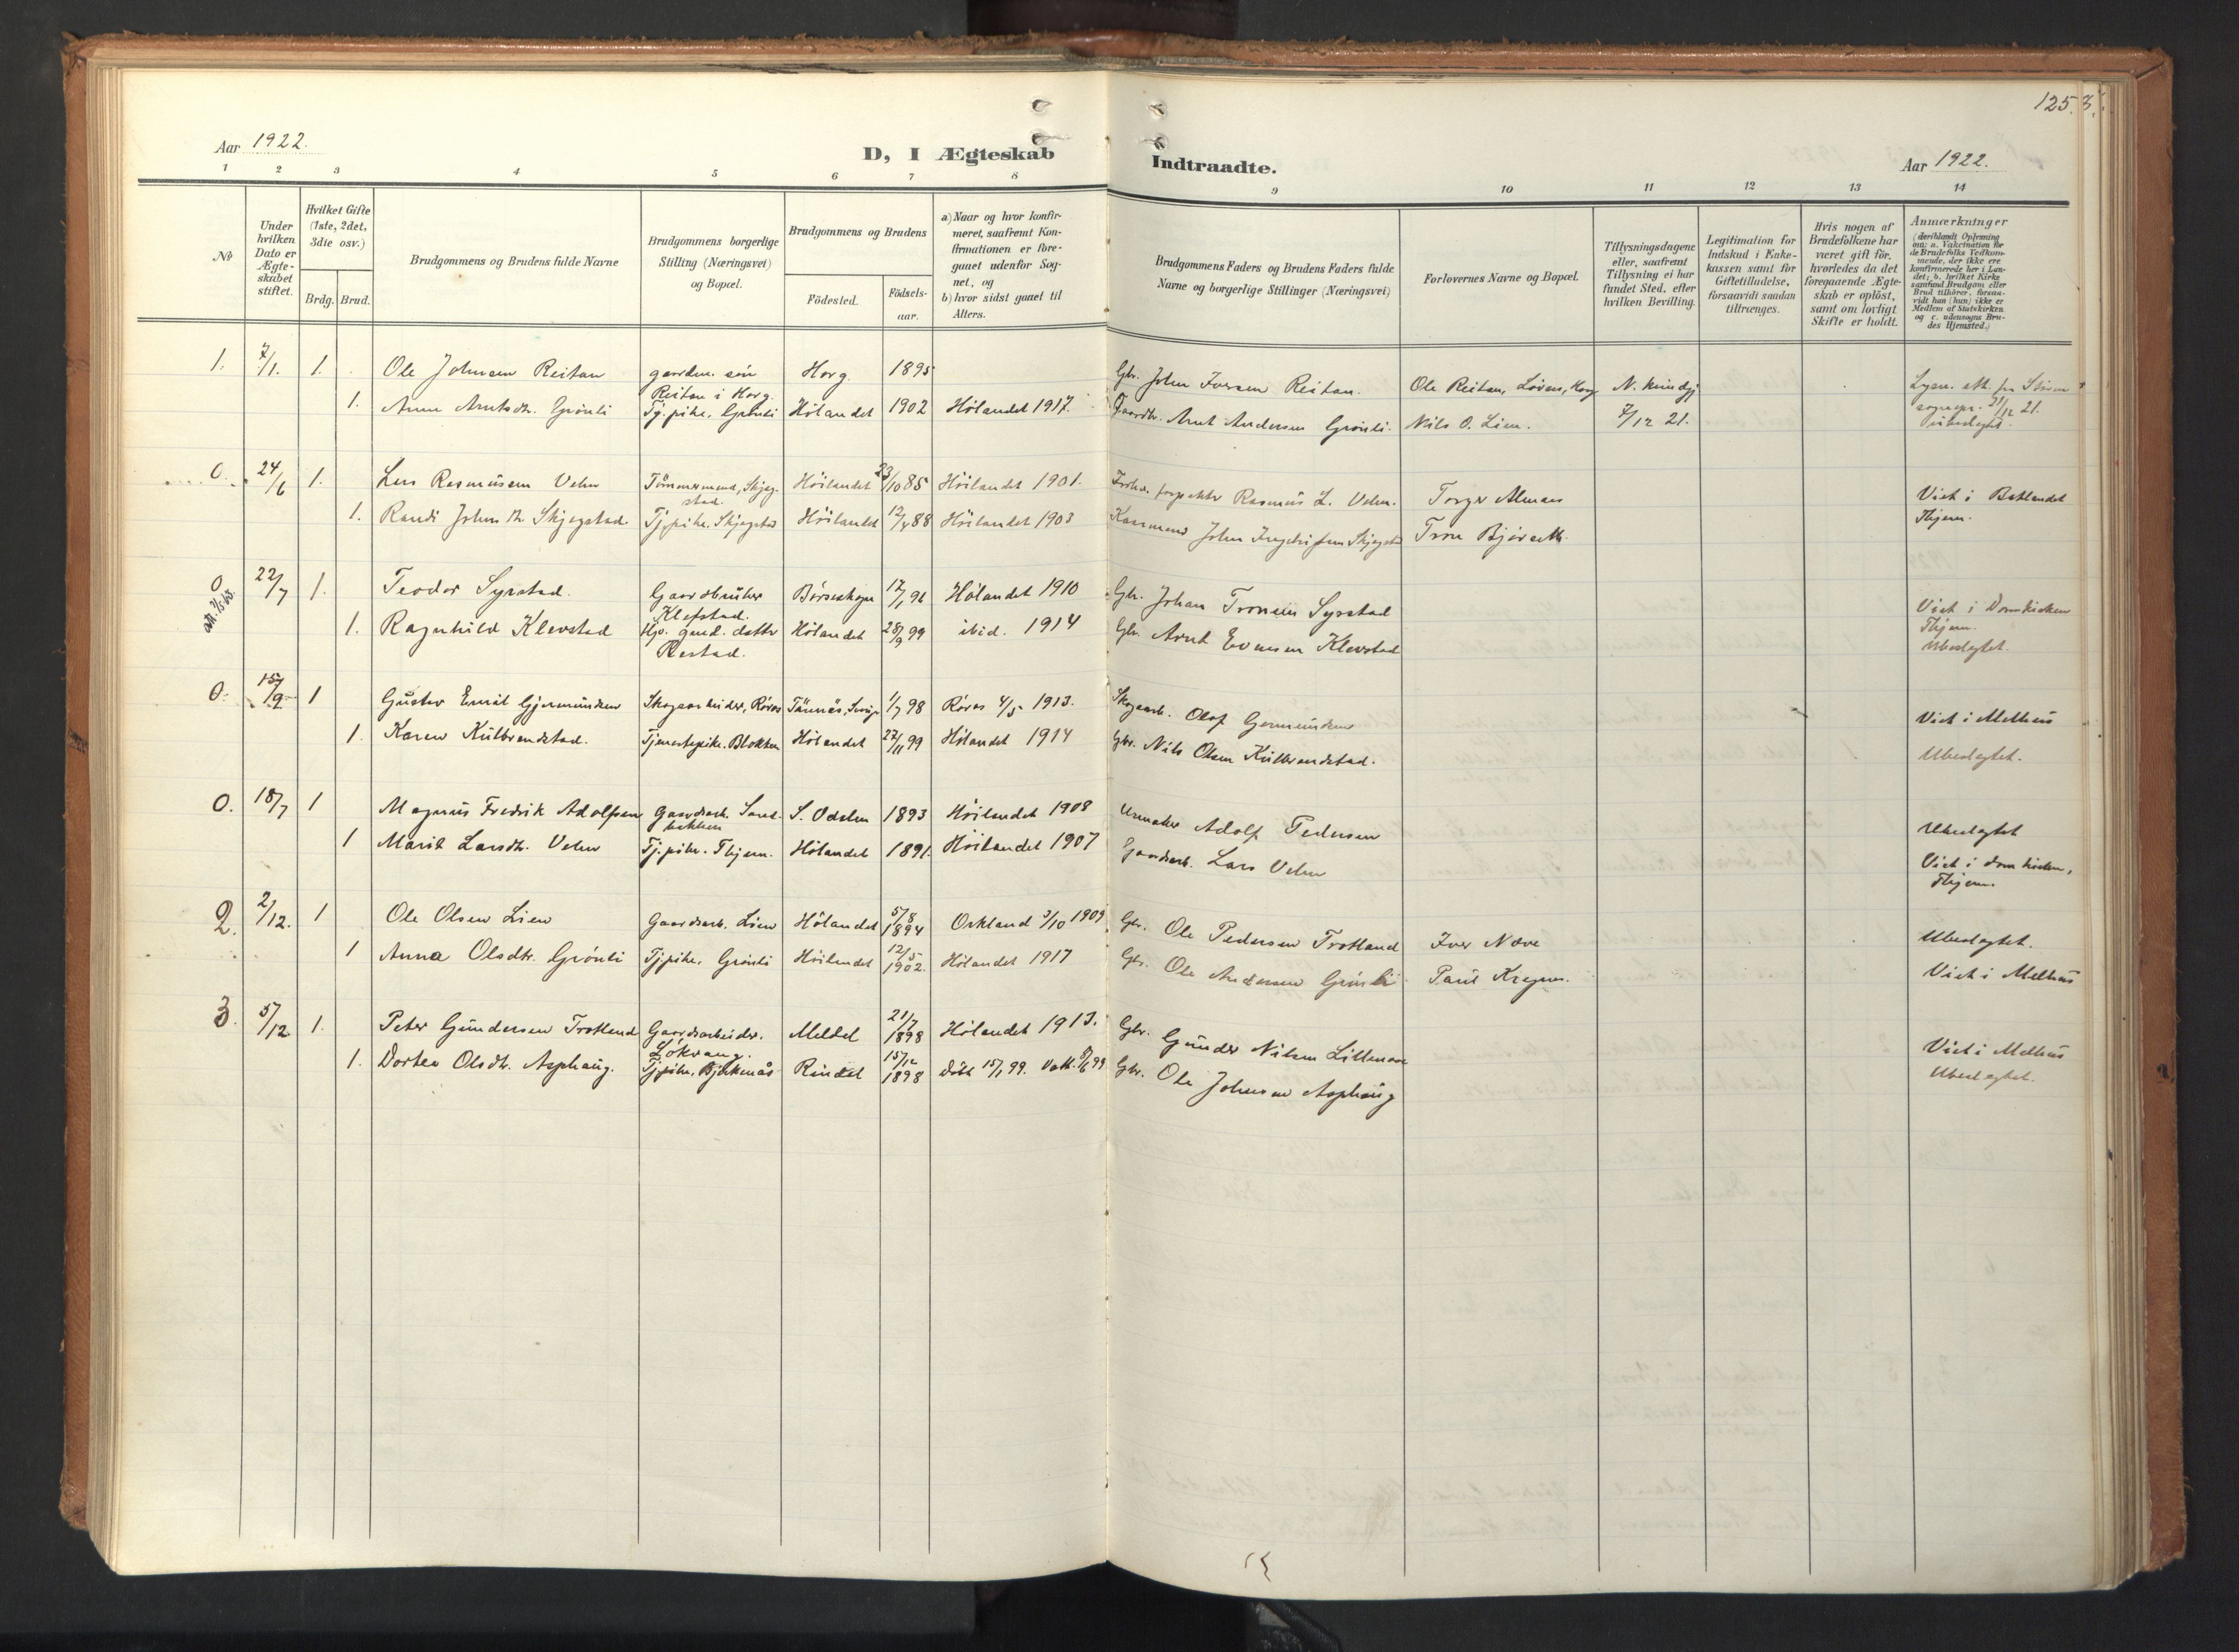 125
3.
Aar 1922.
D, I Ægteskab
Indtraadte.
Aar 1922.
1 2 3 4 5 6 7 8
9 10 11 12 13 14
No
Under hvilken Dato er Ægteskabet stiftet.
Hvilket Gifte (1ste, 2det, 3die osv.)
Brdg. Brud.
Brudgommens og Brudens fulde Navne
Brudgommens borgerlige Stilling (Næringsvei) og Bopæl.
Brudgommens og Brudens
Födested.
Födselsaar.
a) Naar og hvor konfirmeret, saafremt Konfirmationen er foregaaet udenfor Sognet, og
b) hvor sidst gaaet til Alters.
Brudgommens Faders og Brudens Faders fulde Navne og borgerlige Stillinger (Næringsvei)
Forlovernes Navne og Bopæl.
Tillysningsdagene eller, saafremt Tillysning ei har fundet Sted, efter hvilken Bevilling.
Legitimation for Indskud i Enkekassen samt for Giftetilladelse, forsaavidt saadan tiltrænges.
Hvis nogen af Brudefolkene har været gift för, hvorledes da det foregaaende Ægteskab er oplöst, samt om lovligt Skifte er holdt.
Anmærkninger
(deriblandt Oplysning om: a. Vakcination for de Brudefolks Vedkommende, der ikke ere konfirmerede her i Landet; b. hvilket Kirkesamfund Brudgom eller Brud tilhörer, forsaavidt han (hun) ikke er Medlem af Statskirken og c. udensogns Brudes Hjemsted.)
1. 7/1. 1. Ole Johnsen Reitan gaardm. sön Horg 1895 Gbr. John Iversen Reitan. Ole Reitan, Horg N.
Reitan i Horg.
1. Anne Arntsdtr. Grönli Tj. pike, Grönli Hölandet 1902 Hölandet 1917. Gaardbr. Arnt Andersen Grönli. Nils O. Lien. 7/12 21. 21/12 21.
0. 24/6 1. Lars Rasmussen Velen Tömmermand, Skjegstad. Höilandet 23/10 85 Höilandet 1901. Rasmus L. Velen. Torger Viet i Baklandet
1. Randi Johnsdtr. Skjegstad. Tj. pike. Skjegstad Höilandet 88 Höilandet 1903 John Skjegstad Tron Bjørseth. Thjem.
0 22/7 1. Teodor Syrstad. Gaardbruker Börseskogn 17/1 96 Hölandet 1910 Gbr. Johan Tronsen Syrstad Viet i Domkirken
Klefstad. Thjem.
1. Ragnhild Klevstad datter Hölandet 28/9 99 ibid. 1914 Gbr. Arnt Evensen Klevstad Ubeslegtet.
Restad.
0. 15/9 1 Gustav Emil Gjermundsen Skogsarbeider, Röros Tännäs, 1/7 98 Röros 4/5 1913. Skogsarb. Olof Germundsen Viet i Melhus
1. Karen Kulbrandstad. Tjenestepike. Blokken Hölandet 27/11 99 Hölandet 1914 Gbr. Nils Olsen Kulbrandstad. Ubeslegtet.
0. 18/7 1 Magnus Fredrik Adolfsen Gaardsarb. S. Odalen 1893 Höilandet 1908 Urmaker Adolf Pedersen Ubeslegtet
1 Marit Larsdtr. Velen Tj. pike. Thjem. Hölandet 1891. Höilandet 1907 Gaardsarb. Lars Velen Viet i Domkirken,
Thjem.
2. 2/12. 1 Ole Olsen Lien Gaardsarb. Lien Hölandet 5/8 1894 Orkland 3/10 1909 Gbr. Ole Pedersen Trotland Iver Næve Ubeslegtet.
1 Anna Olsdtr. Grönli Tj. pike, Grönli Höilandet 12/5 1902. Hölandet 1917 Gbr. Ole Andersen Grönli Paul Viet i Melhus
3. 5/12. 1. Peter Gundersen Trotland Gaardsarbeider. Meldal 21/7 1898 Hölandet 1913. Gbr. Gunder Nilsen Viet i Melhus
Lökvang.
1. Dortea Olsdtr. Asphaug. Tj. pike, Bjerkenås Rindal 15/12 1898 Döbt 15/1 99. Vakt. 99 Gbr. Ole Johnsen Asphaug Ubeslegtet.